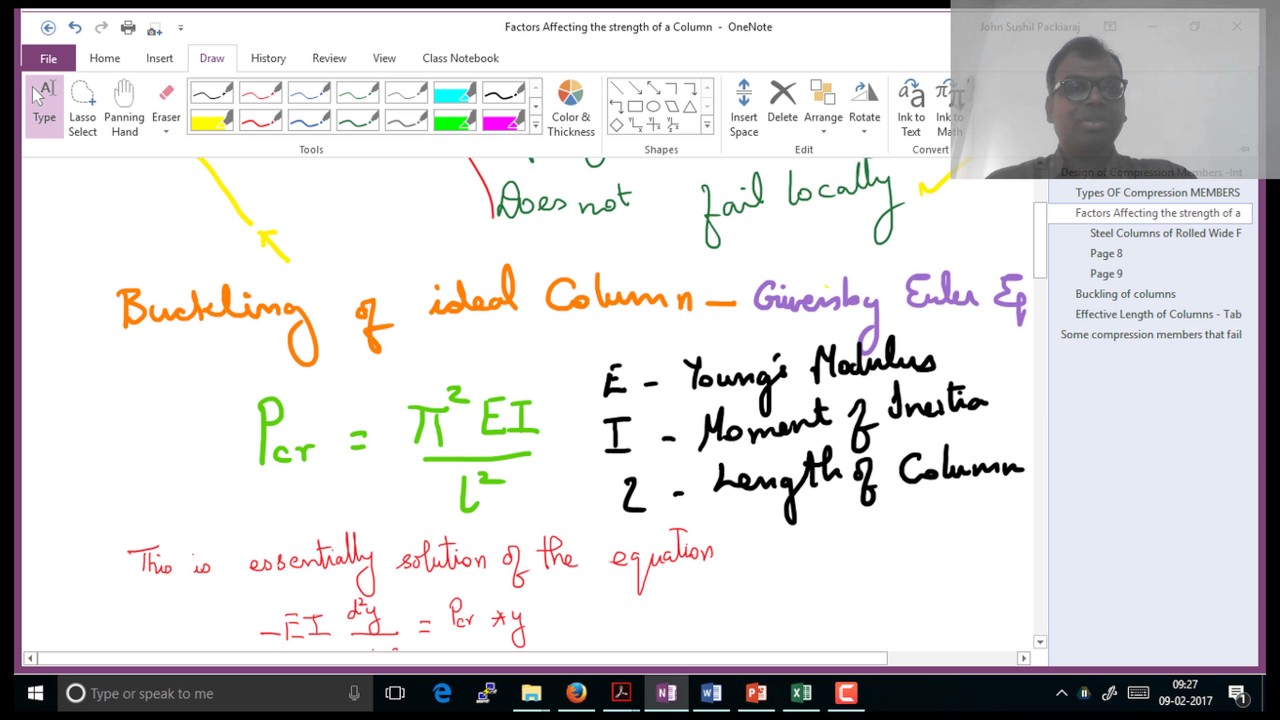 Factors Affecting the strength of a Column - OneNote
John Sushil Packiaraj
File Home Insert Draw History Review View Class Notebook
Type
Lasso Select
Panning Hand
Eraser
Color & Thickness
Insert Space
Delete
Arrange
Rotate
Ink to Text
Ink to Math
Tools
Shapes
Edit
Convert
Does not fail locally
Buckling of ideal Column - Given by Euler Eq
Pcr = π² EI / l²
E - Young's Modulus
I - Moment of Inertia
l - Length of Column
This is essentially solution of the equation
-EI d²y = Pcr * y
Design of Compression Members -Int
Types OF Compression MEMBERS
Factors Affecting the strength of a
Steel Columns of Rolled Wide F
Page 8
Page 9
Buckling of columns
Effective Length of Columns - Tab
Some compression members that fail
Type or speak to me
09:27
09-02-2017